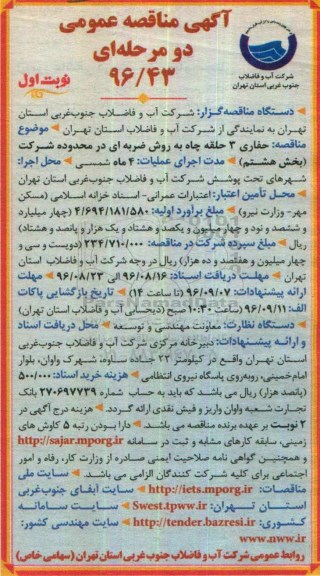 آگهی مناقصه عمومی
دو مرحله‌ای
۹۶/۴۳
نوبت اول
شرکت آب و فاضلاب
جنوب غربی استان تهران
دستگاه مناقصه‌گزار: شرکت آب و فاضلاب جنوب‌غربی استان
تهران به نمایندگی از شرکت آب و فاضلاب استان تهران موضوع
مناقصه: حفاری ۳ حلقه چاه به روش ضربه ای در محدوده شرکت
(بخش هشتم) مدت اجرای عملیات: ۴ ماه شمسی محل اجرا:
شهرهای تحت پوشش شرکت آب و فاضلاب جنوب‌غربی استان تهران
محل تأمین اعتبار: اعتبارات عمرانی- اسناد خزانه اسلامی (مسکن
مهر- وزارت نیرو) مبلغ برآورد اولیه: ۴/۶۹۴/۱۸۱/۵۸۰ (چهار میلیارد
و ششصد و نود و چهار میلیون و یکصد و هشتاد و یک هزار و پانصد و هشتاد)
ریال مبلغ سپرده شرکت در مناقصه: ۲۳۴/۷۱۰/۰۰۰ (دویست و سی و
چهار میلیون و هفتصد و ده هزار) ریال در وجه شرکت آب و فاضلاب استان
تهران مهلت دریافت اسناد: ۹۶/۰۸/۱۶ الی ۹۶/۰۸/۲۳ مهلت
ارائه پیشنهادات: ۹۶/۰۹/۰۷ (تا ساعت ۱۴) تاریخ بازگشایی پاکات
الف: ۹۶/۰۹/۱۱ (ساعت ۱۰:۳۰ صبح (ذیحسابی آب و فاضلاب استان تهران)
دستگاه نظارت: معاونت مهندسی و توسعه محل دریافت اسناد
و ارائه پیشنهادات: دبیرخانه مرکزی شرکت آب و فاضلاب جنوب‌غربی
استان تهران واقع در کیلومتر ۲۳ جاده ساوه، شهرک واوان، بلوار
امام‌خمینی، روبه‌روی پاسگاه نیروی انتظامی هزینه خرید اسناد: ۵۰۰/۰۰۰
(پانصد هزار) ریال می باشد که باید به حساب شماره ۲۷۰۶۹۷۷۳۹ بانک
تجارت شعبه واوان واریز و فیش نقدی ارائه گردد هزینه درج آگهی در
۲ نوبت بر عهده برنده مناقصه می باشد. دارا بودن رتبه ۵ کاوش های
زمینی، سابقه کارهای مشابه و ثبت در سامانه http://sajar.mporg.ir
و همچنین گواهی نامه صلاحیت ایمنی صادره از وزارت کار، رفاه و امور
اجتماعی برای کلیه شرکت کنندگان الزامی می باشد. سایت ملی
مناقصات: http://iets.mporg.ir سایت آبفای جنوب‌غربی
استان تهران: Swest.tpww.ir سایت سامانه
کشوری: http://tender.bazresi.ir سایت مهندسی کشور:
www.nww.ir
روابط عمومی شرکت آب و فاضلاب جنوب غربی استان تهران (سهامی خاص)